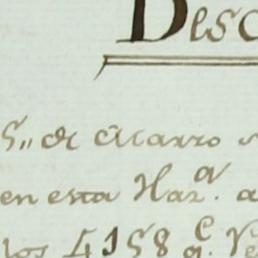 Desc
S,, de Marzo
en esta Haz.ª a
los 4158